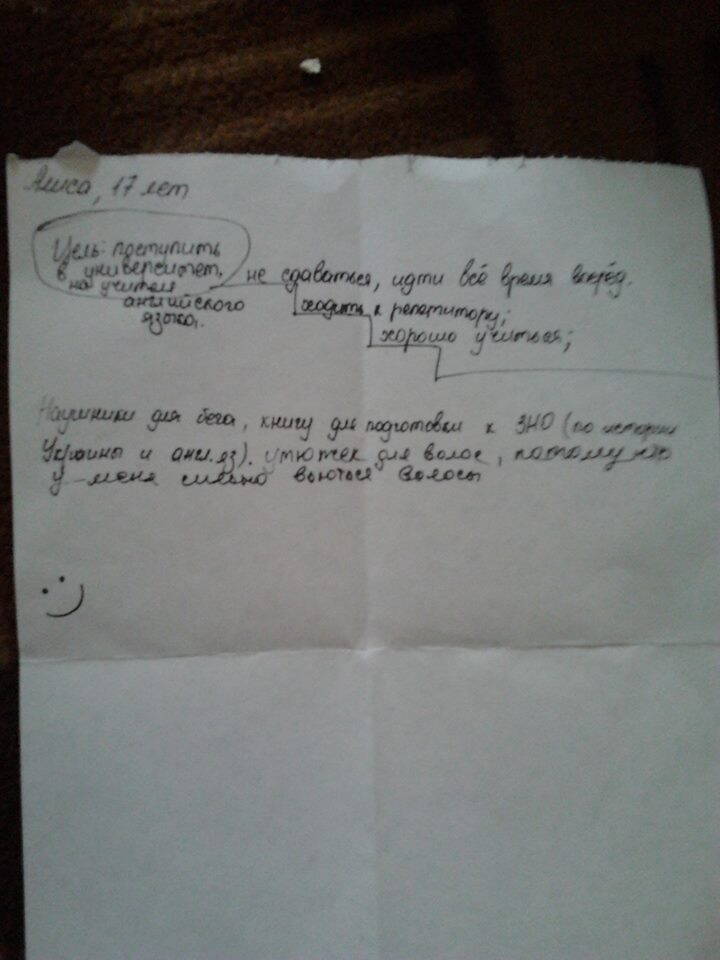 Алиса, 17 лет
Цель: поступить
в университет,
на учителя
английского
языка.
не сдаваться, идти всё время вперёд.
ходить к репетитору;
хорошо учиться;
Наушники для бега, книгу для подготовки к ЗНО (по истории
Украины и англ.яз). утюжек для волос, потому что
у меня сильно вьються волосы
:)